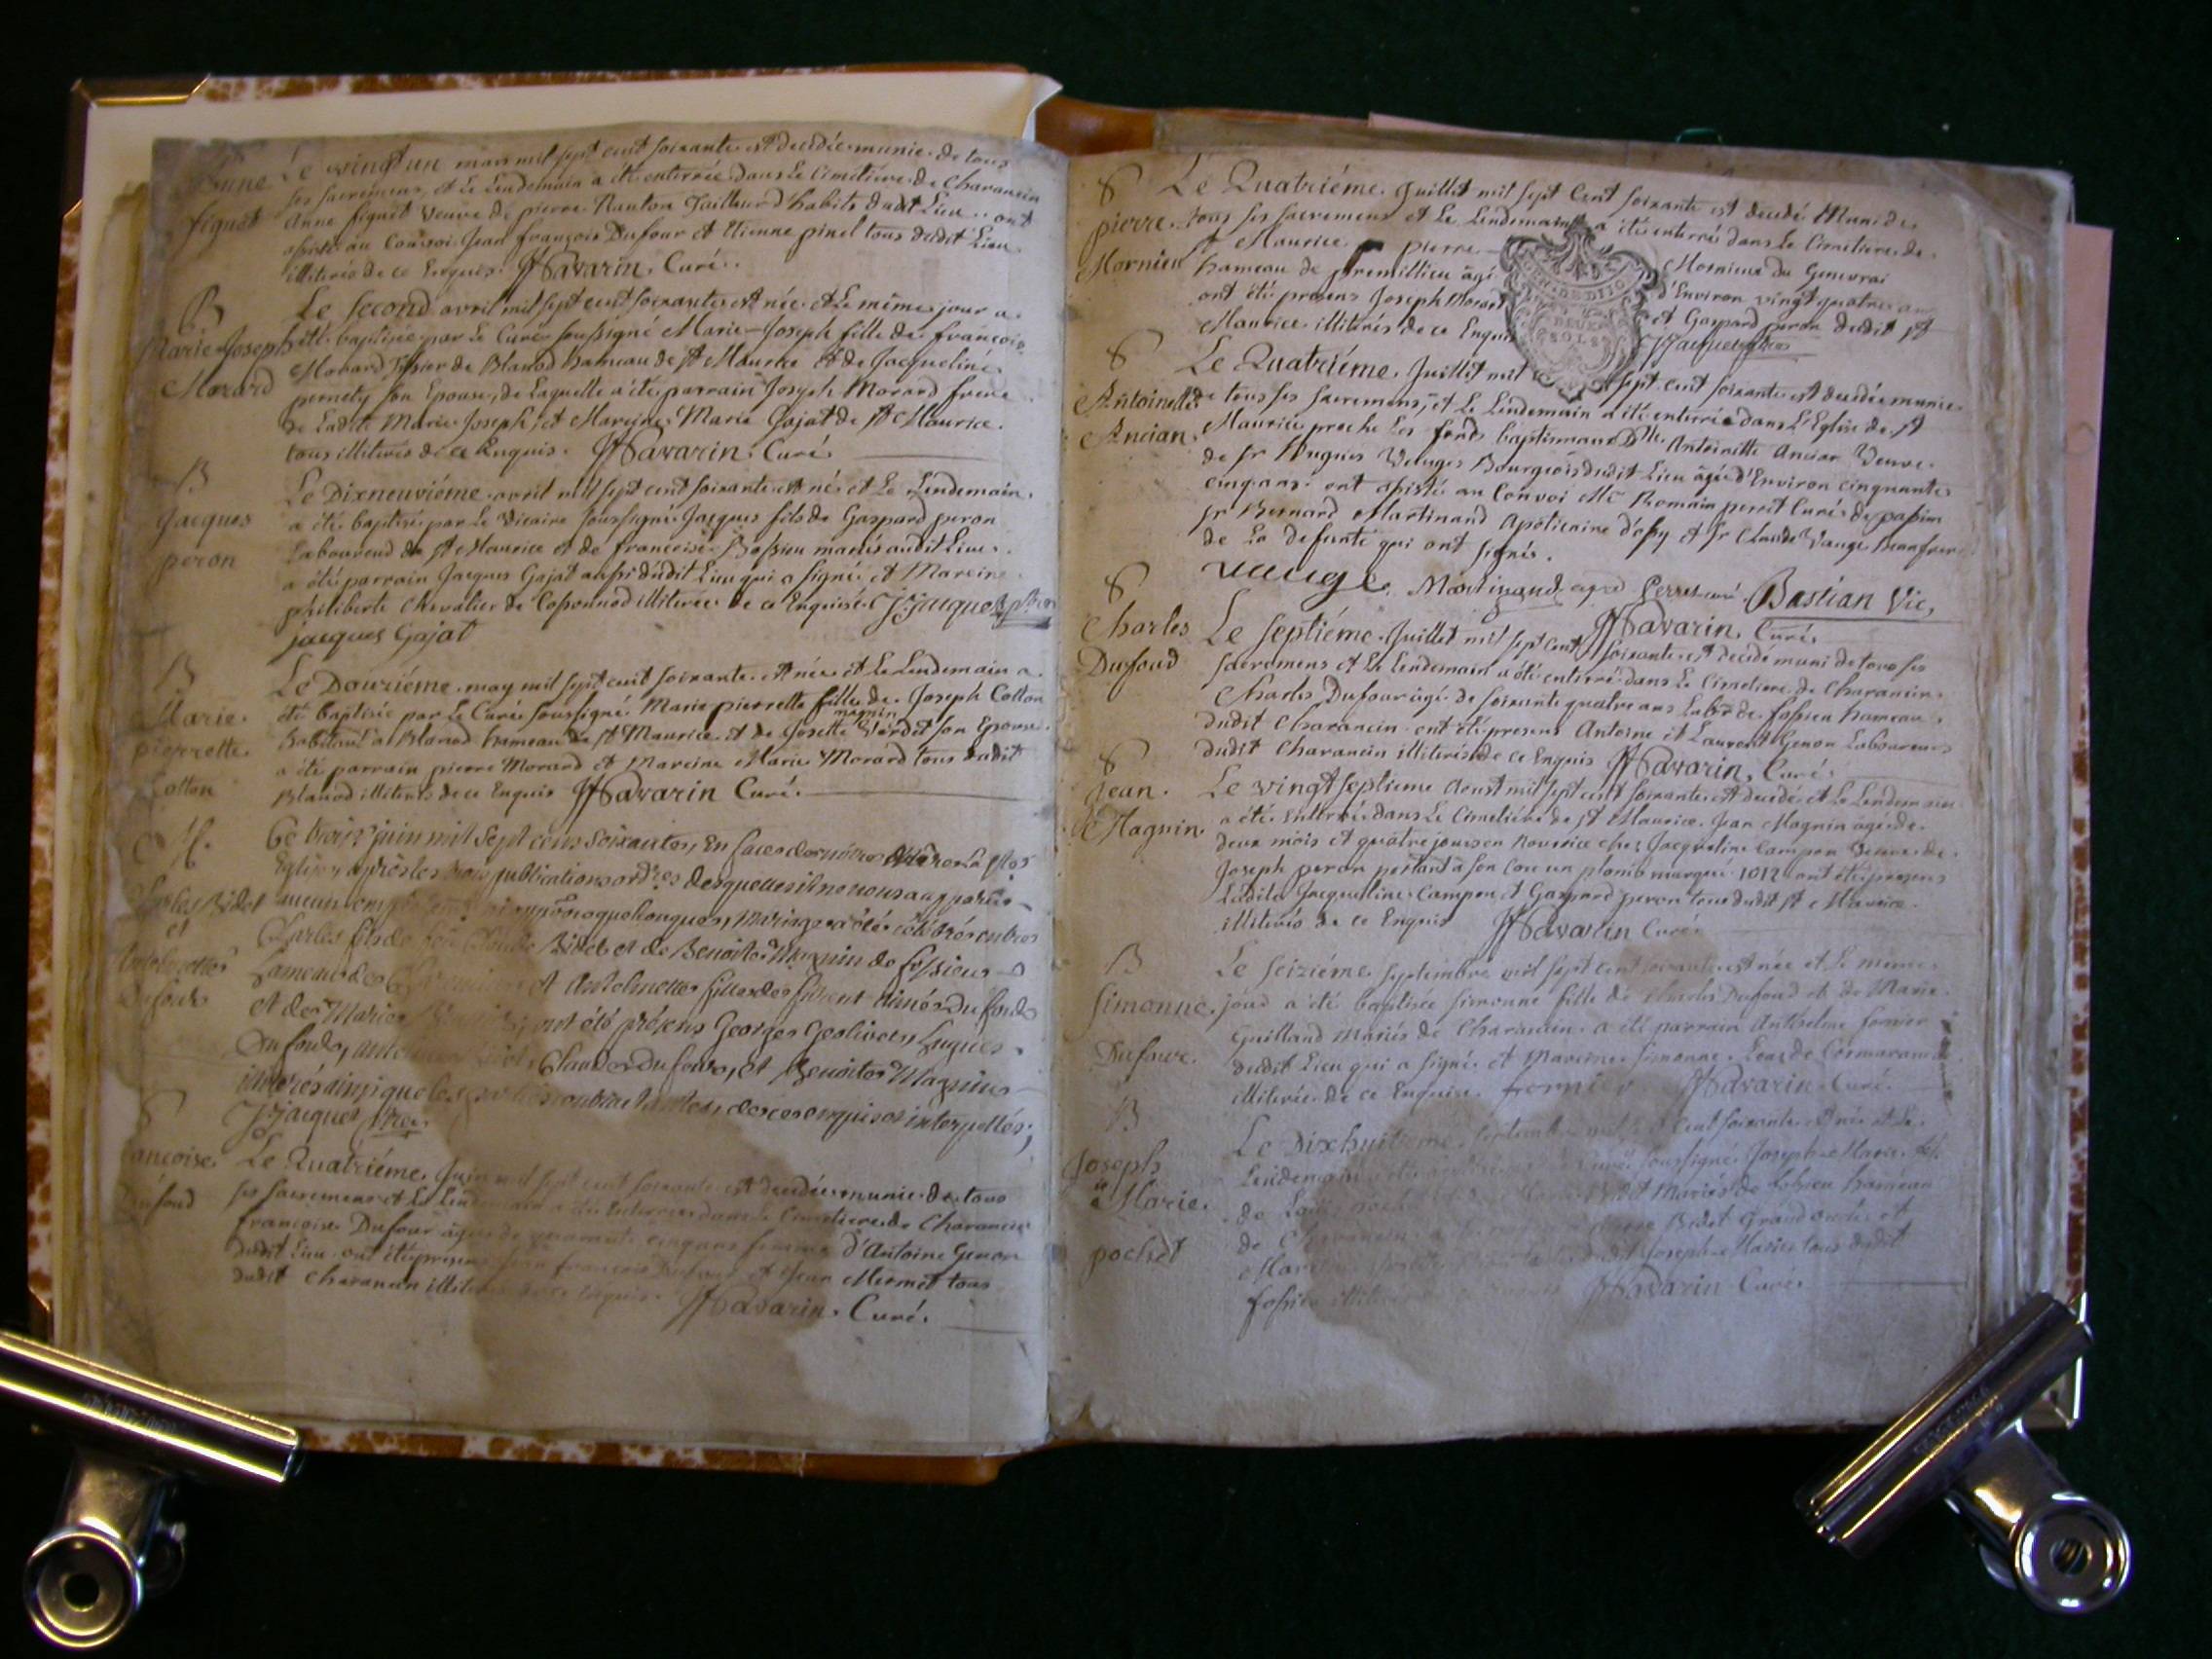 Anne
figuet
Le vingt un mars mil sept cent soixante est decedée munie de tous
ses sacremens, et Le Lendemain a été enterrée dans Le Cimetiere de Charancin
Anne figuet Veuve de pierre Tailleur d'habits dudit Lieu ont
assisté au Convoi Jean françois Dufour et Etienne pinel tous dudit Lieu
illiterés de ce Enquis. Savarin, Curé.
B
Marie Joseph
Morard
Le Second avril mil sept cent soixante est née et Le même jour a
été baptisée par Le Curé soussigné Marie-Joseph fille de françois
Morard de Blanod hameau de St Maurice et de Jacqueline
pernety son Epouse, de Laquelle a été parrain Joseph Morard frere
de Ladite Marie Joseph, et Mareine Marie Gajat de St Maurice.
tous illiterés de ce Enquis. Savarin, Curé.
B
Jacques
peron
Le Dixneuviéme avril mil sept cent soixante est né et Le Lendemain
a été baptisé par Le Vicaire soussigné Jacques fils de Gaspard peron
Laboureud de St Maurice et de françoise Bossieu mariés audit Lieu
a été parrain Jacques Gajat aussi dudit Lieu qui a signé et Mareine
philiberte Chevalier de illiterée de ce Enquise Jacquet ptre
jacques Gajat
B
Marie
pierrette
Cotton
Le Douziéme may mil sept cent soixante est née et Le Lendemain a
été baptisée par Le Curé soussigné Marie pierrette fille de Joseph Cotton
magnin
habitant a Blanod hameau de St Maurice et de Josette Verdet son Epouse
a été parrain pierre Morard et Mareine Marie Morard tous dudit
Blanod illiterés de ce Enquis Savarin Curé.
M.
Charles Bidet
et
Antoinette
Dufour
Ce trois juin mil sept cens soixante, En face de notre mere La Ste
Eglise, après les trois publications ordres desquelles il ne nous a apparu
aucun quelconque, mariage a été celebré entre
Charles fils de feu Claude Bidet et de Benoite Magnin de fossieu
hameau de et Antoinette fille de Dufour
et de Marie ont été présens George Hugues
Dufour, Claude Dufour, et Benoite Magnin
illiterés ainsi que les parties contractantes, de ce enquis et interpellés;
Jacquet ptre.
S
francoise
Dufoud
Le Quatriéme Juin mil sept cent soixante est decedée munie de tous
ses sacremens et Le Lendemain a été enterrée dans Le Cimetiere de Charancin
francoise Dufour agée de quarante cinq ans femme d'Antoine Genon
dudit Lieu ont été presens Jean francois Dufour et Jean Mermet tous
dudit Charancin illiterés de ce Enquis. Savarin, Curé.
S
pierre
Mornieu
Le Quatriéme Juillet mil sept Cent soixante est decedé Muni de
tous ses sacremens et Le Lendemain a été enterré dans Le Cimetiere de
St Maurice pierre Mornieux du Genevrai
hameau de premillieu âgé d'Environ vingt quatre ans
ont été presens Joseph Morard et Gaspard peron dudit St
Maurice illiterés de ce Enquis Jacquet ptre
S
Antoinette
Ancian
Le Quatriéme Juillet mil sept cent soixante est decedée munie
de tous ses sacremens, et Le Lendemain a été enterrée dans L'Eglise de St
Maurice proche Les fonts baptismaux Dlle Antoinette Ancian Veuve
de Sr Hugues Vauges Bourgeois dudit Lieu âgée d'Environ cinquante
cinq ans ont assisté au Convoi Mre Romain perret Curé de passin
Sr Bernard Martinand Apoticaire d' et Sr Claude Vauge Beaufrere
de La defunte qui ont signés.
vauge. Martinand Perret curé Bastian Vic,
Savarin, Curé.
S
Charles
Dufoud
Le Septiéme Juillet mil sept cent soixante est decedé muni de tous ses
sacremens et Le Lendemain a été enterré dans Le Cimetiere de Charancin
Charles Dufour âgé de soixante quatre ans Labr de fossieu hameau
dudit Charancin ont été presens Antoine et Laurent Genon Laboureurs
dudit Charancin illiterés de ce Enquis Savarin, Curé.
S
Jean
Magnin
Le vingt Septieme Aoust mil sept cent soixante est decedé et Le Lendemain
a été enterré dans Le Cimetiere de St Maurice Jean Magnin âgé de
deux mois et quatre jours en Nourrice chez Jacqueline Campon Veuve de
Joseph peron portant a son Cou un plomb marqué 1012 ont été presens
Ladite Jacqueline Campon et Gaspard peron tous dudit St Maurice
illiterés de ce Enquis Savarin Curé
B
Simonne
Dufour
Le Seiziéme Septembre mil sept cent soixante est née et Le même
joud a été baptisée Simonne fille de Charles Dufoud et de Marie
Guilland Mariés de Charancin a été parrain Anthelme fornier
dudit Lieu qui a signé et Mareine Simonne de Cormaranche
illiterée de ce Enquise fornier Savarin Curé.
B
Joseph
Marie
pochet
Le Dixhuitieme Septembre mil sept cent soixante est né et Le
Lendemain a été baptisé par Le Curé soussigné Joseph-Marie fils
de pochet et de Bidet Mariés de fossieu hameau
de Charancin a été parrain Bidet Grand oncle et
Mareine dudit Joseph-Marie tous dudit
fossieu illiterés Savarin Curé.